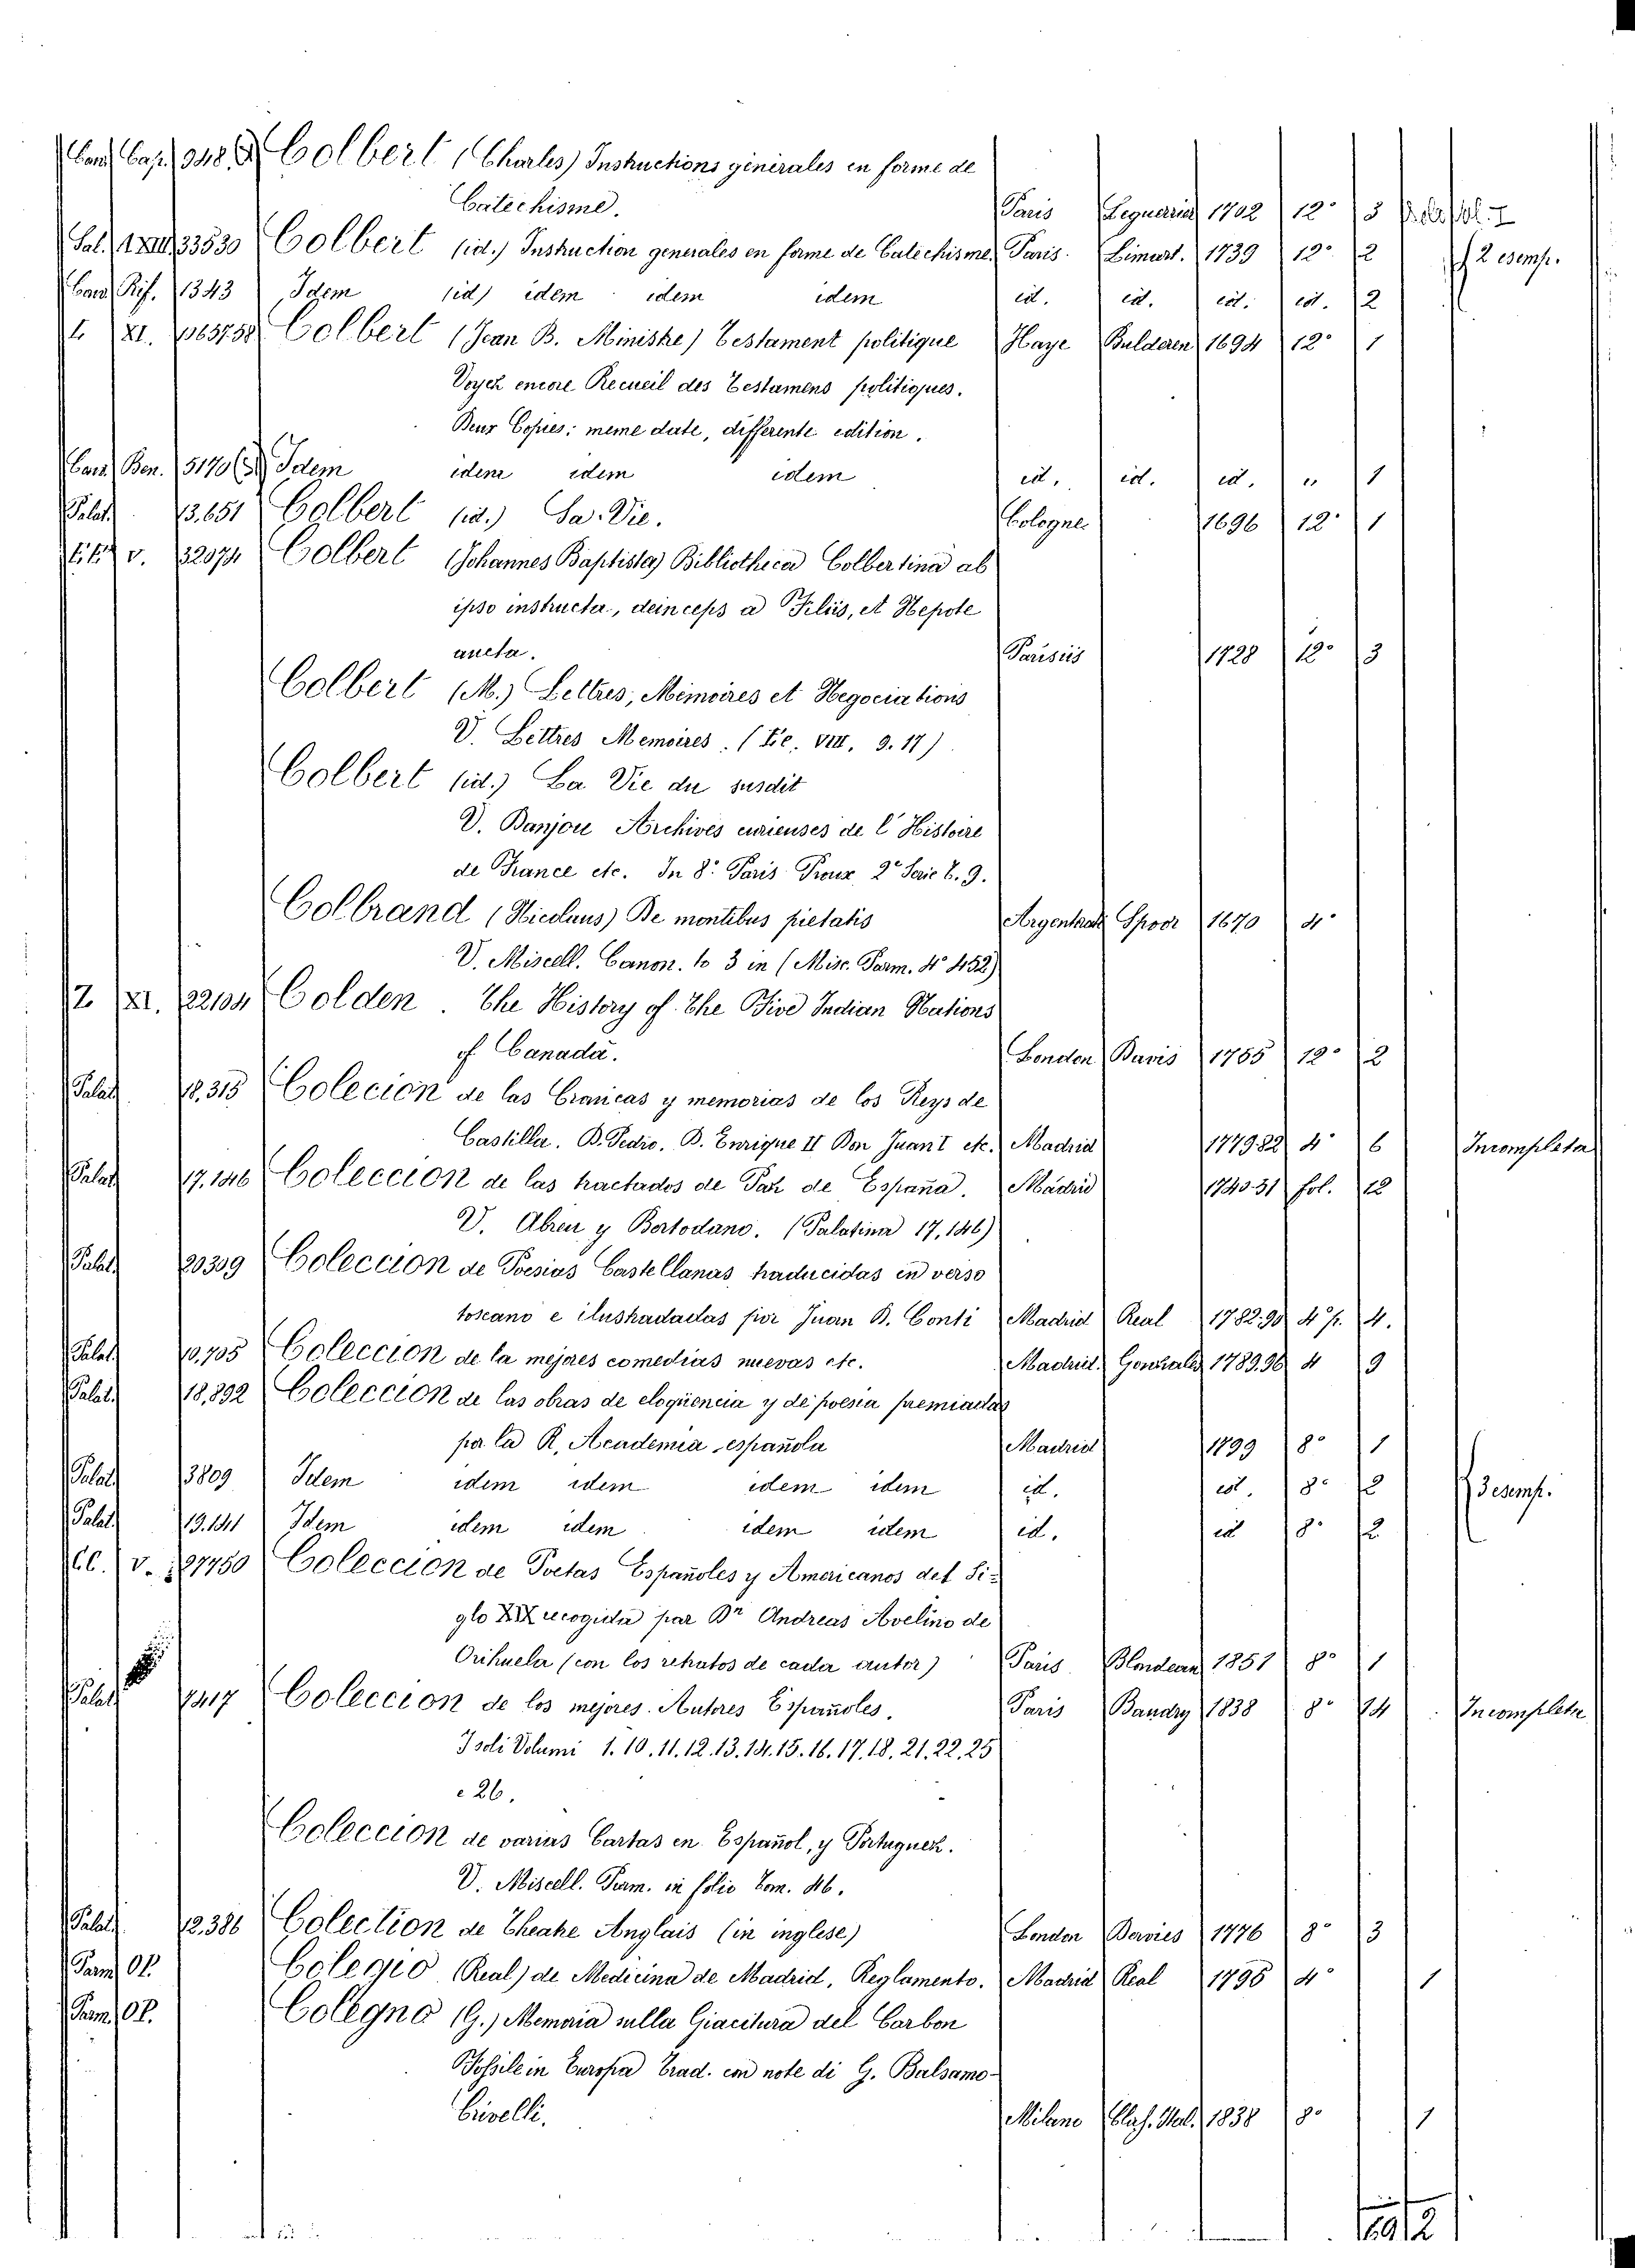 Colbert (Charles) Instructions génerales en forme de
Catechisme. Paris 1702 12° 3
Sal. 33530 Colbert (id.) Instruction generales en forme de Catechisme. Paris. Simart. 1739 12° 2 2 esemp.
Rif. 1343 Idem (id) idem idem idem id. id. id. id. 2
XI. Colbert (Jean B. Ministre) Testament politique Haye Bulderen 1694 12° 1
Voyez encore Recueil des Testamens politiques.
Deux Copies: meme date, differente edition.
Ben. 5170 Idem idem idem idem id. id. id. " 1
Palat. 13.651 Colbert (id.) Sa Vie. Cologne 1696 12° 1
V. 32074 Colbert (Johannes Baptista) Bibliotheca Colbertina ab
ipso instructa, deinceps a Filiis, et Nepote
aucta. Parisiis 1728 12° 3
Colbert (M.) Lettres, Mémoires et Negociations
V. Lettres Memoires. ( VIII. 9. 17)
Colbert (id.) La Vie du susdit
V. Danjou Archives curienses de l'Histoire
de France etc. In 8° Paris 2e Serie t. 9.
Colbrand (Nicolaus) De montibus pietatis Argentrat. Spoor 1670 4°
V. Miscell. Canon. to 3 in (Misc. Parm. 4° 452)
Z. XI. 22104 Colden. The History of The Five Indian Nations
of Canada. London Davis 1755 12° 2
Palat. 18.315 Colecion de las Cranicas y memorias de los Reys de
Castilla. D. Pedro. D. Enrique II Don Juan I etc. Madrid 1779.82 4° 6 Incompleta
Palat. 17.146 Coleccion de las tractados de Paz de España. Madrid 1740.51 fol. 12
V. Abreu y Bertodano. (Palatina 17,146)
Palat. 20309 Coleccion de Poesias Castellanas, traducidas en verso
toscano e ilustradadas por Juan B. Conti Madrid Real 1782.90 4° p. 4.
Palat. 10,705 Coleccion de la mejores comedias nuevas etc. Madrid. Gonzales 1789.96 4 9
Palat. 18,892 Coleccion de las obras de eloqüencia y de poesia premiadas
por la R. Academia española Madrid 1799 8° 1
Palat. 13809 Idem idem idem idem idem id. id. 8° 2 3 esemp.
Palat. 19.141 Idem idem idem idem idem id. id 8° 2
V. 27750 Coleccion de Poetas Españoles y Americanos del Si-
glo XIX recogida par Dn Andreas Avelino de
Orihuela (con los retratos de cada autor) Paris. Blondeau 1851 8° 1
Palat. 7417 Coleccion de los mejores Autores Españoles. Paris Baudry 1838 8° 14 Incompleta
I soli Volumi 1. 10. 11. 12. 13. 14. 15. 16. 17. 18. 21. 22. 25
e 26.
Coleccion de varias Cartas en Español, y Portuguez.
V. Miscell. Parm. in folio Tom. 46.
Palat. 12.386 Colection de Theatre Anglais (in inglese) London Davies 1776 8° 3
Parm. OP. Colegio (Real) de Medicina de Madrid. Reglamento. Madrid Real 1795 4° 1
Parm. OP. Colegno (G.) Memoria sulla Giacitura del Carbon
Fossile in Europa Trad. con note di G. Balsamo-
Crivelli. Milano Class. Ital. 1838 8° 1